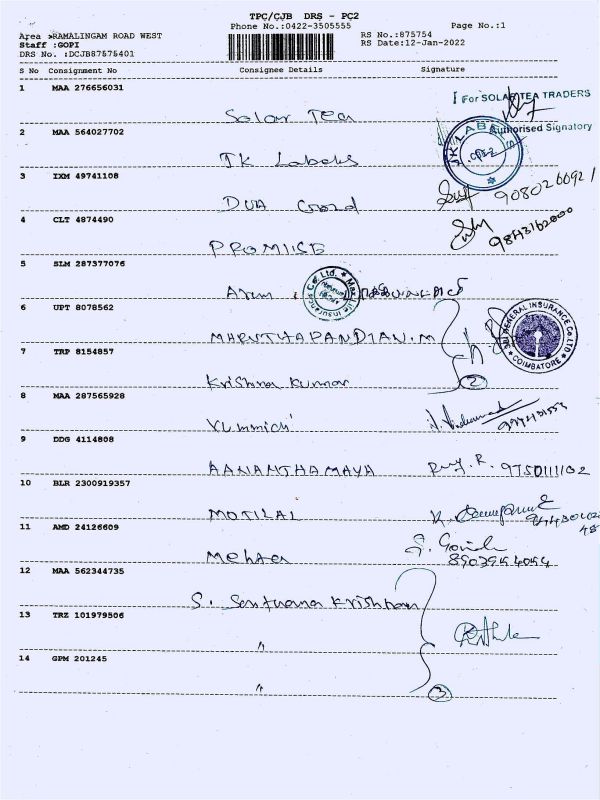 TPC/CJB DRS - PC2
Phone No.:0422-3505555 Page No.:1
Area :RAMALINGAM ROAD WEST RS No.:875754
Staff :GOPI RS Date:12-Jan-2022
DRS No. :DCJB87575401
S No Consignment No Consignee Details Signature
1 MAA 276656031
For SOLAR TEA TRADERS
Solar Tea
Authorised Signatory
2 MAA 564027702
JK LABELS
JK Labels
3 IXM 49741108
DUA Gold
4 CLT 4874490
9843162000
PROMIISE
5 SLM 287377076
Max Life Insurance Co. Ltd.
Arun
6 UPT 8078562
SBI GENERAL INSURANCE Co. LTD.
COIMBATORE
MARUTHAPANDIAN.M
7 TRP 8154857
Krishna Kumar
2
8 MAA 287565928
9 DDG 4114808
AANANTHAMAYA 9750111102
10 BLR 2300919357
MOTILAL
11 AMD 24126609
S. Govind
Mehta 8903954094
12 MAA 562344735
S. Santhana Krishnan
13 TRZ 101979506
"
14 GPM 201245
"
3